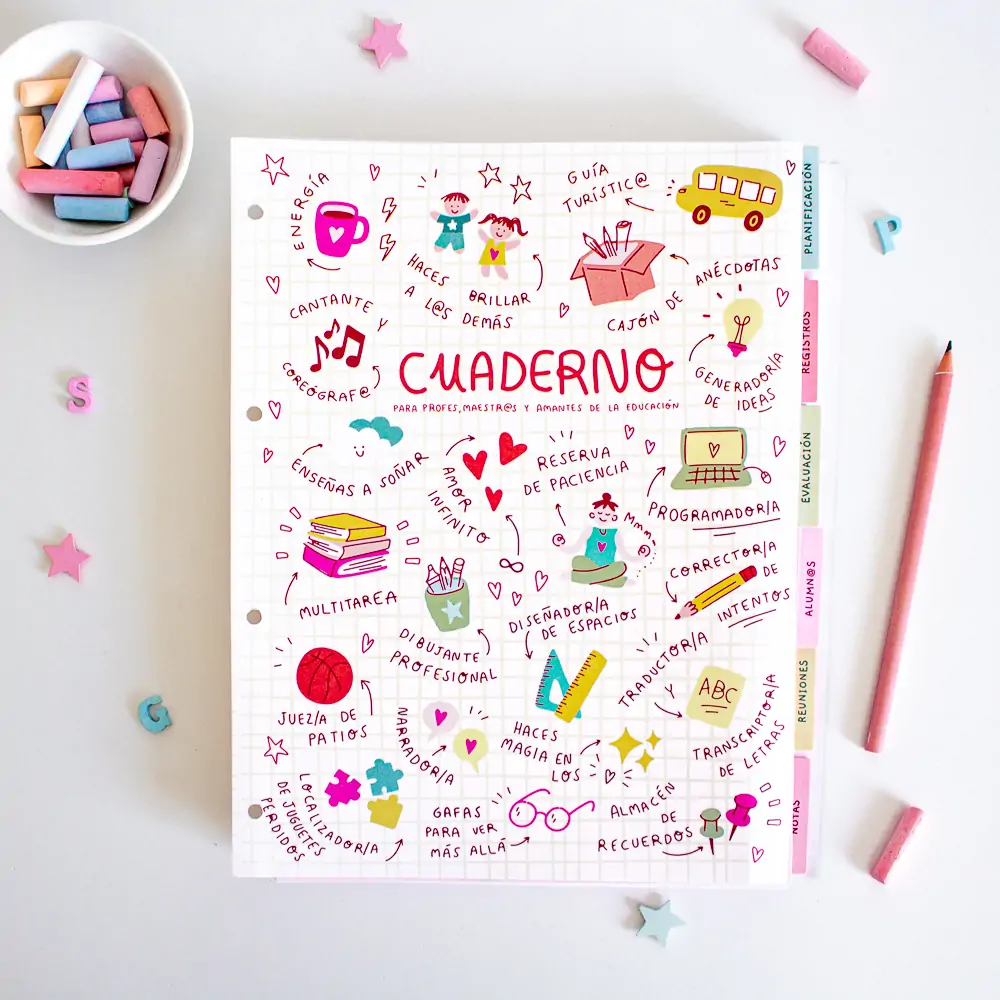 ENERGÍA
HACES BRILLAR
A L@S DEMÁS
GUÍA
TURÍSTIC@
CAJÓN DE ANÉCDOTAS
CANTANTE Y
COREÓGRAF@
GENERADOR/A
DE IDEAS
CUADERNO
PARA PROFES, MAESTR@S Y AMANTES DE LA EDUCACIÓN
ENSEÑAS A SOÑAR
AMOR
INFINITO
RESERVA
DE PACIENCIA
Mmm,
PROGRAMADOR/A
MULTITAREA
DIBUJANTE
PROFESIONAL
DISEÑADOR/A
DE ESPACIOS
CORRECTOR/A
DE
INTENTOS
JUEZ/A DE
PATIOS
NARRADOR/A
HACES
MAGIA EN
LOS
TRADUCTOR/A
Y
ABC
TRANSCRIPTOR/A
DE LETRAS
LOCALIZADOR/A
DE JUGUETES
PERDIDOS
GAFAS
PARA VER
MÁS ALLÁ
ALMACÉN
DE
RECUERDOS
PLANIFICACIÓN
REGISTROS
EVALUACIÓN
ALUMN@S
REUNIONES
NOTAS
P
S
G